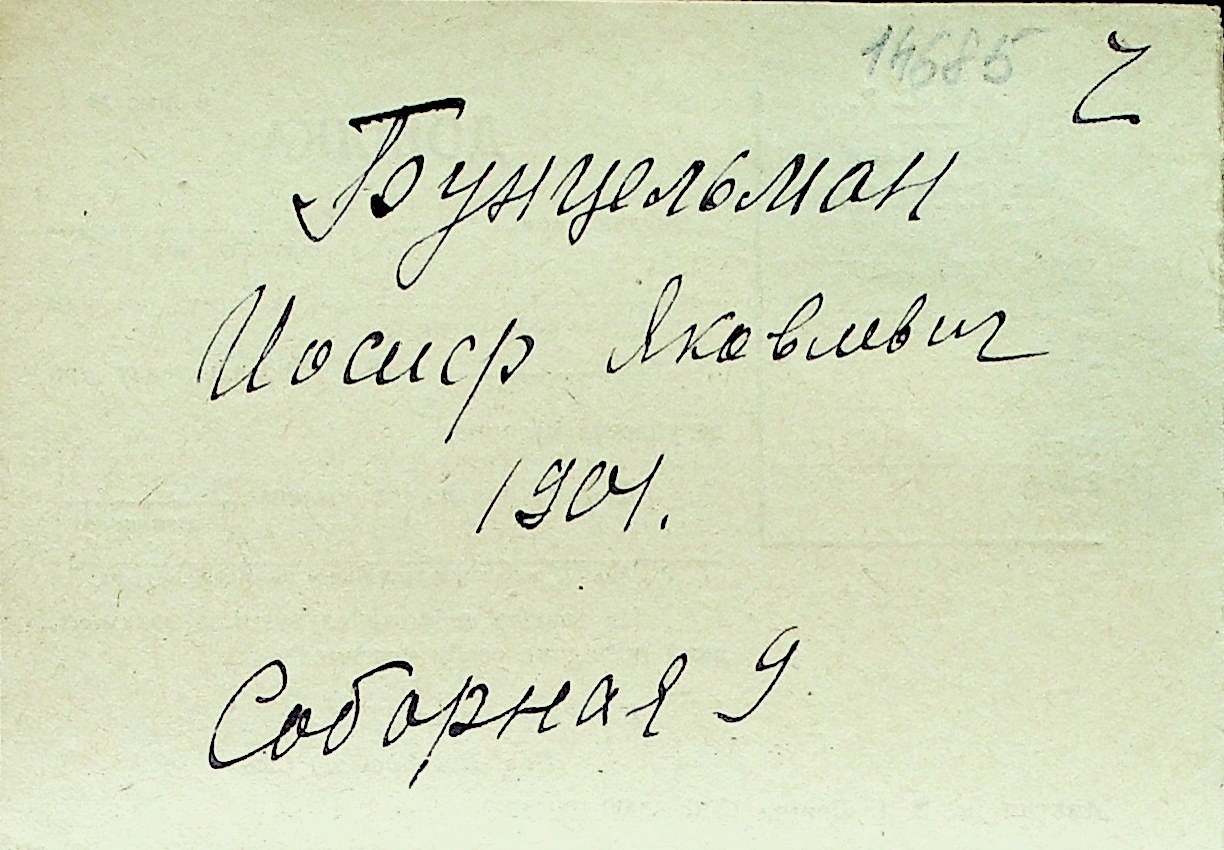 14685 2
Бунцельман
Иосиф Яковлевич
1901.
Соборная 9